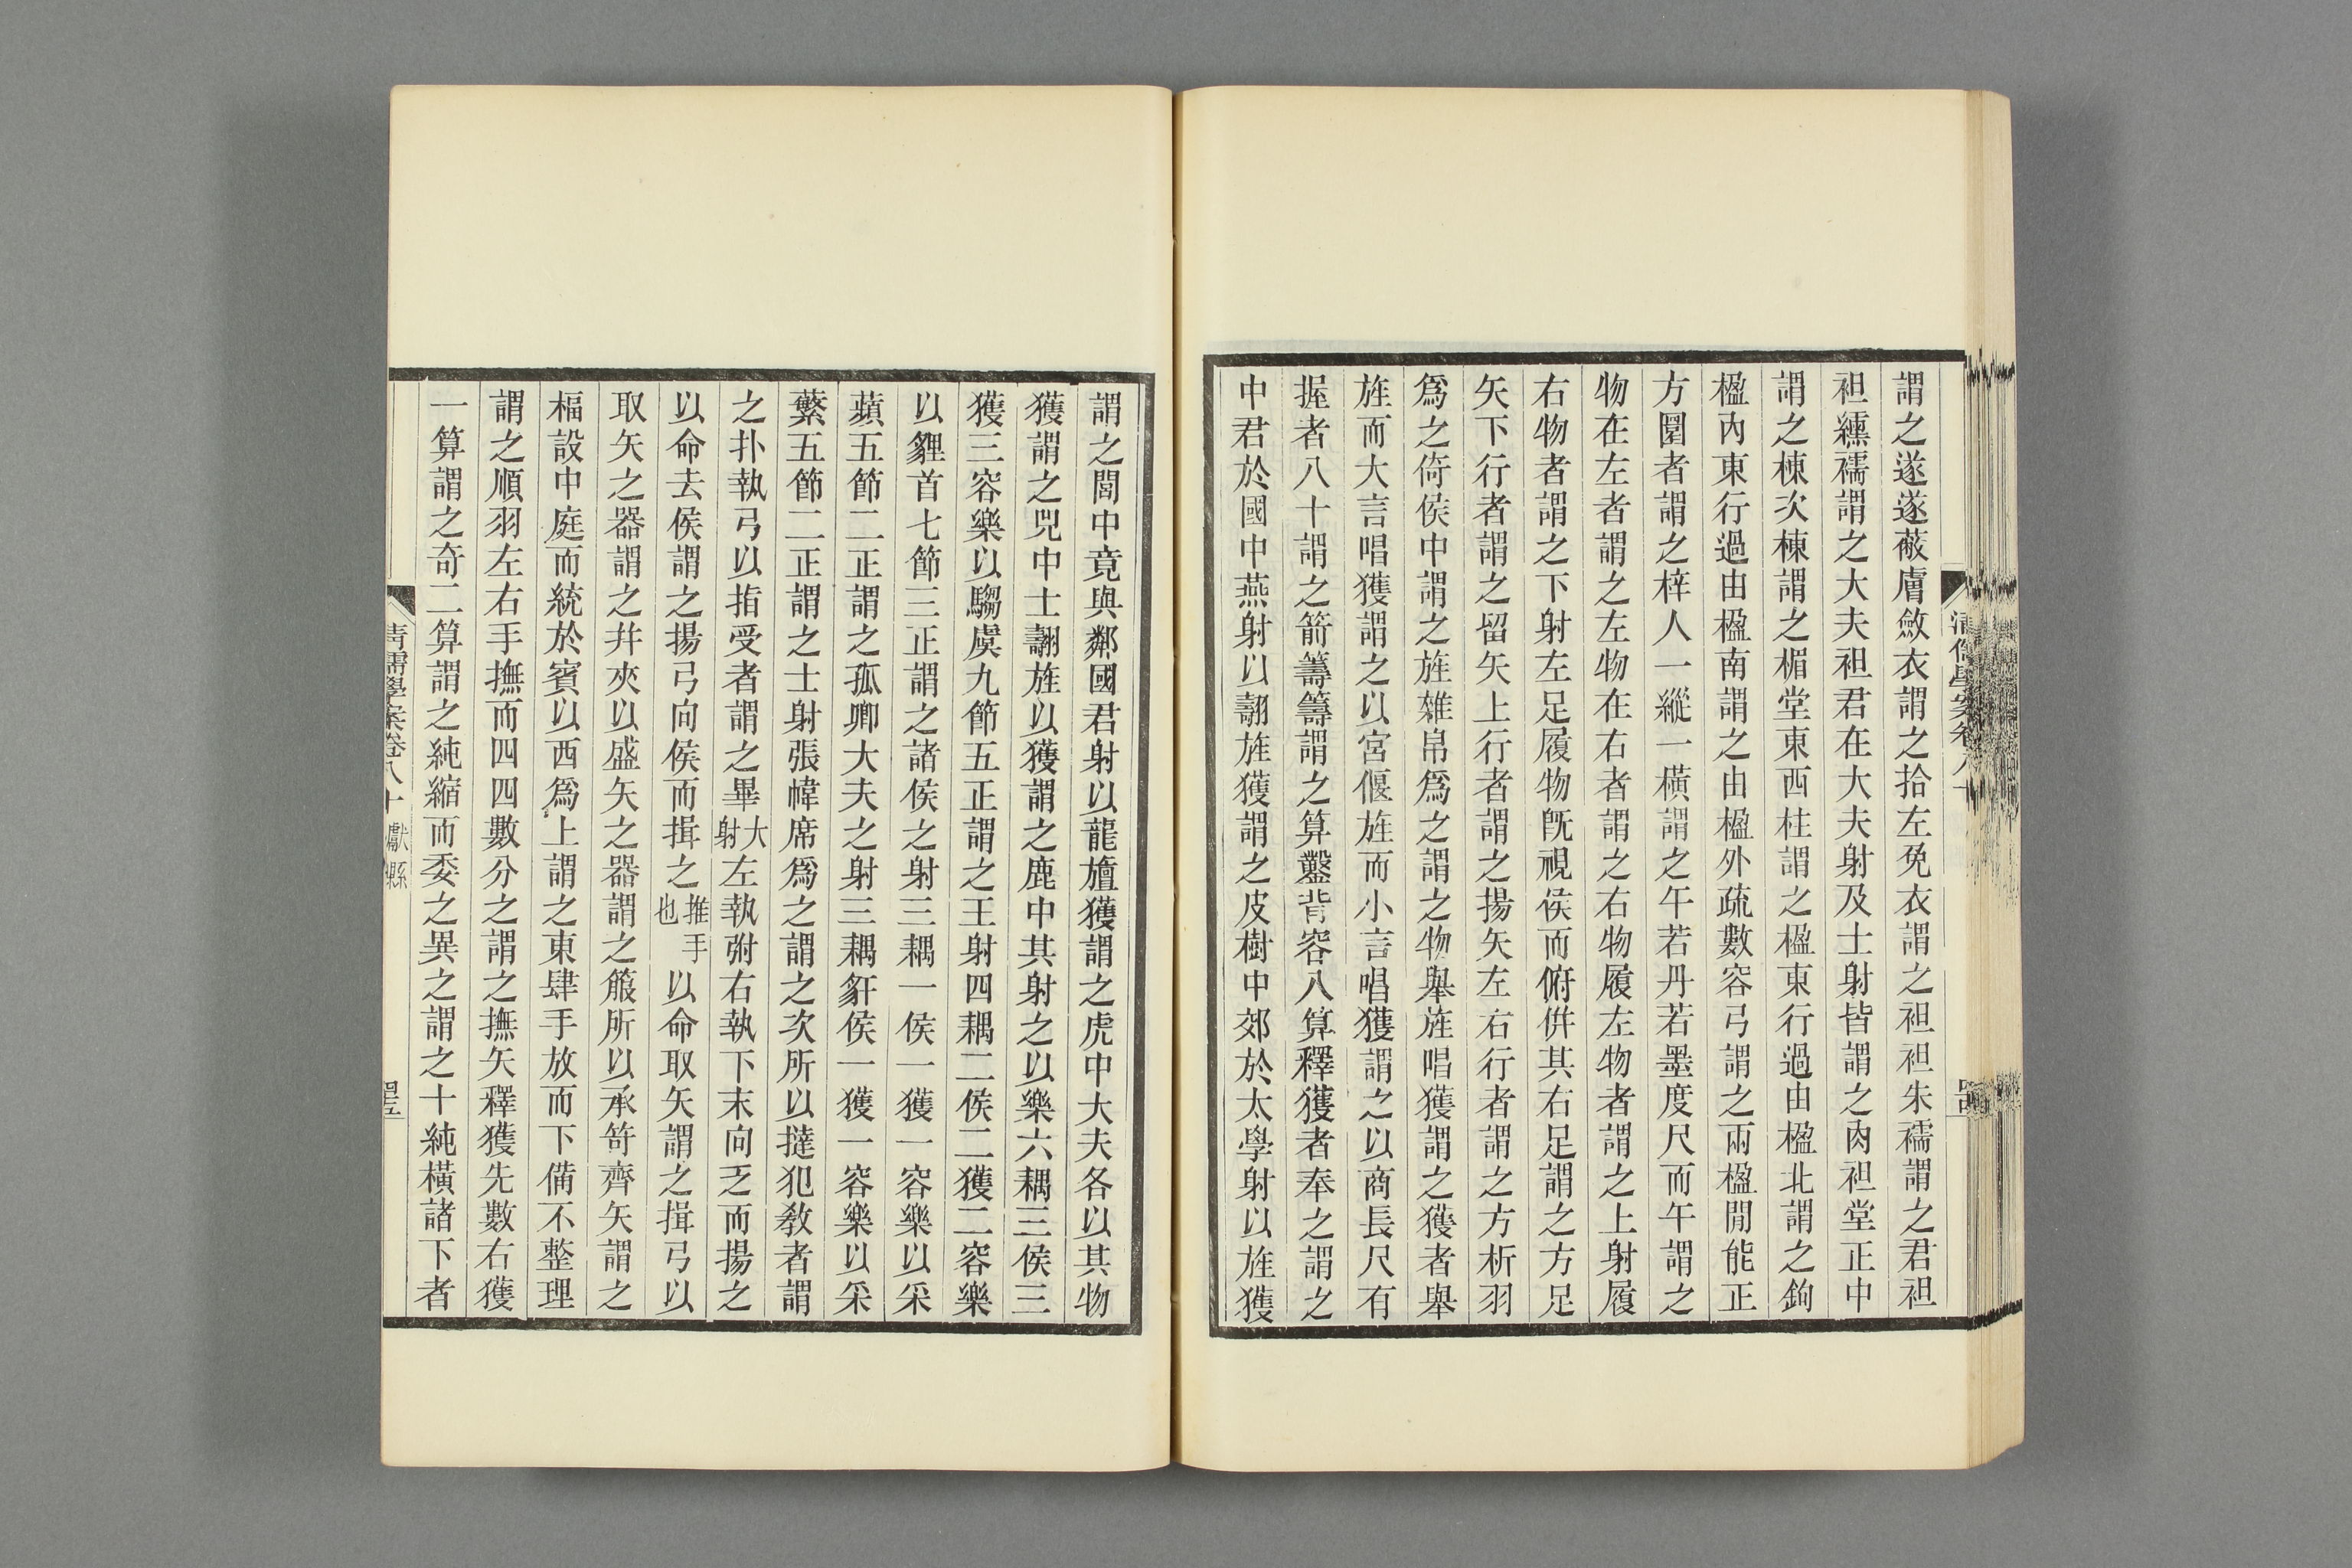 謂之遂遂蔽膚斂衣謂之拾左免衣謂之袒袒朱襦謂之君袒
袒纁襦謂之大夫袒君在大夫射及士射皆謂之肉袒堂正中
謂之棟次棟謂之楣堂東西柱謂之楹東行過由楹北謂之鉤
楹內東行過由楹南謂之由楹外疏數容弓謂之兩楹閒能正
方圜者謂之梓人一縱一橫謂之午若丹若墨度尺而午謂之
物在左者謂之左物在右者謂之右物履左物者謂之上射履
右物者謂之下射左足履物旣視侯而俯併其右足謂之方足
矢下行者謂之留矢上行者謂之揚矢左右行者謂之方析羽
爲之倚侯中謂之旌雜帛爲之謂之物舉旌唱獲謂之獲者舉
旌而大言唱獲謂之以宮偃旌而小言唱獲謂之以商長尺有
握者八十謂之箭籌籌謂之算鑿背容八算釋獲者奉之謂之
中君於國中燕射以翿旌獲謂之皮樹中郊於太學射以旌獲
謂之閭中竟與鄰國君射以龍旜獲謂之虎中大夫各以其物
獲謂之兕中士翿旌以獲謂之鹿中其射之以樂六耦三侯三
獲三容樂以騶虞九節五正謂之王射四耦二侯二獲二容樂
以貍首七節三正謂之諸侯之射三耦一侯一獲一容樂以采
蘋五節二正謂之孤卿大夫之射三耦豻侯一獲一容樂以采
蘩五節二正謂之士射張幃席爲之謂之次所以撻犯敎者謂
之扑執弓以指受者謂之畢大射左執弣右執下末向乏而揚之
以命去侯謂之揚弓向侯而揖之推手也以命取矢謂之揖弓以
取矢之器謂之幷夾以盛矢之器謂之箙所以承笴齊矢謂之
楅設中庭而統於賓以西爲上謂之東肆手放而下備不整理
謂之順羽左右手撫而四四數分之謂之撫矢釋獲先數右獲
一算謂之奇二算謂之純縮而委之異之謂之十純橫諸下者
清儒學案卷八十 獻縣